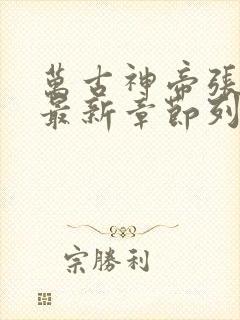 萬古神帝張
最新章節列
宗勝利